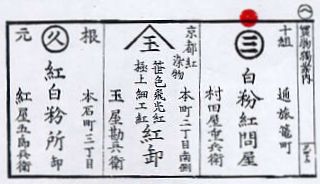 買物獨案内
十組
通旅籠町
三
白粉紅問屋
村田屋重兵衛
京都紅
染物
本町二丁目南側
玉
笹色飛光紅
極上細工紅
紅卸
玉屋勘兵衛
根
元
久
本石町三丁目
紅白粉所
卸
紅屋五郎兵衛